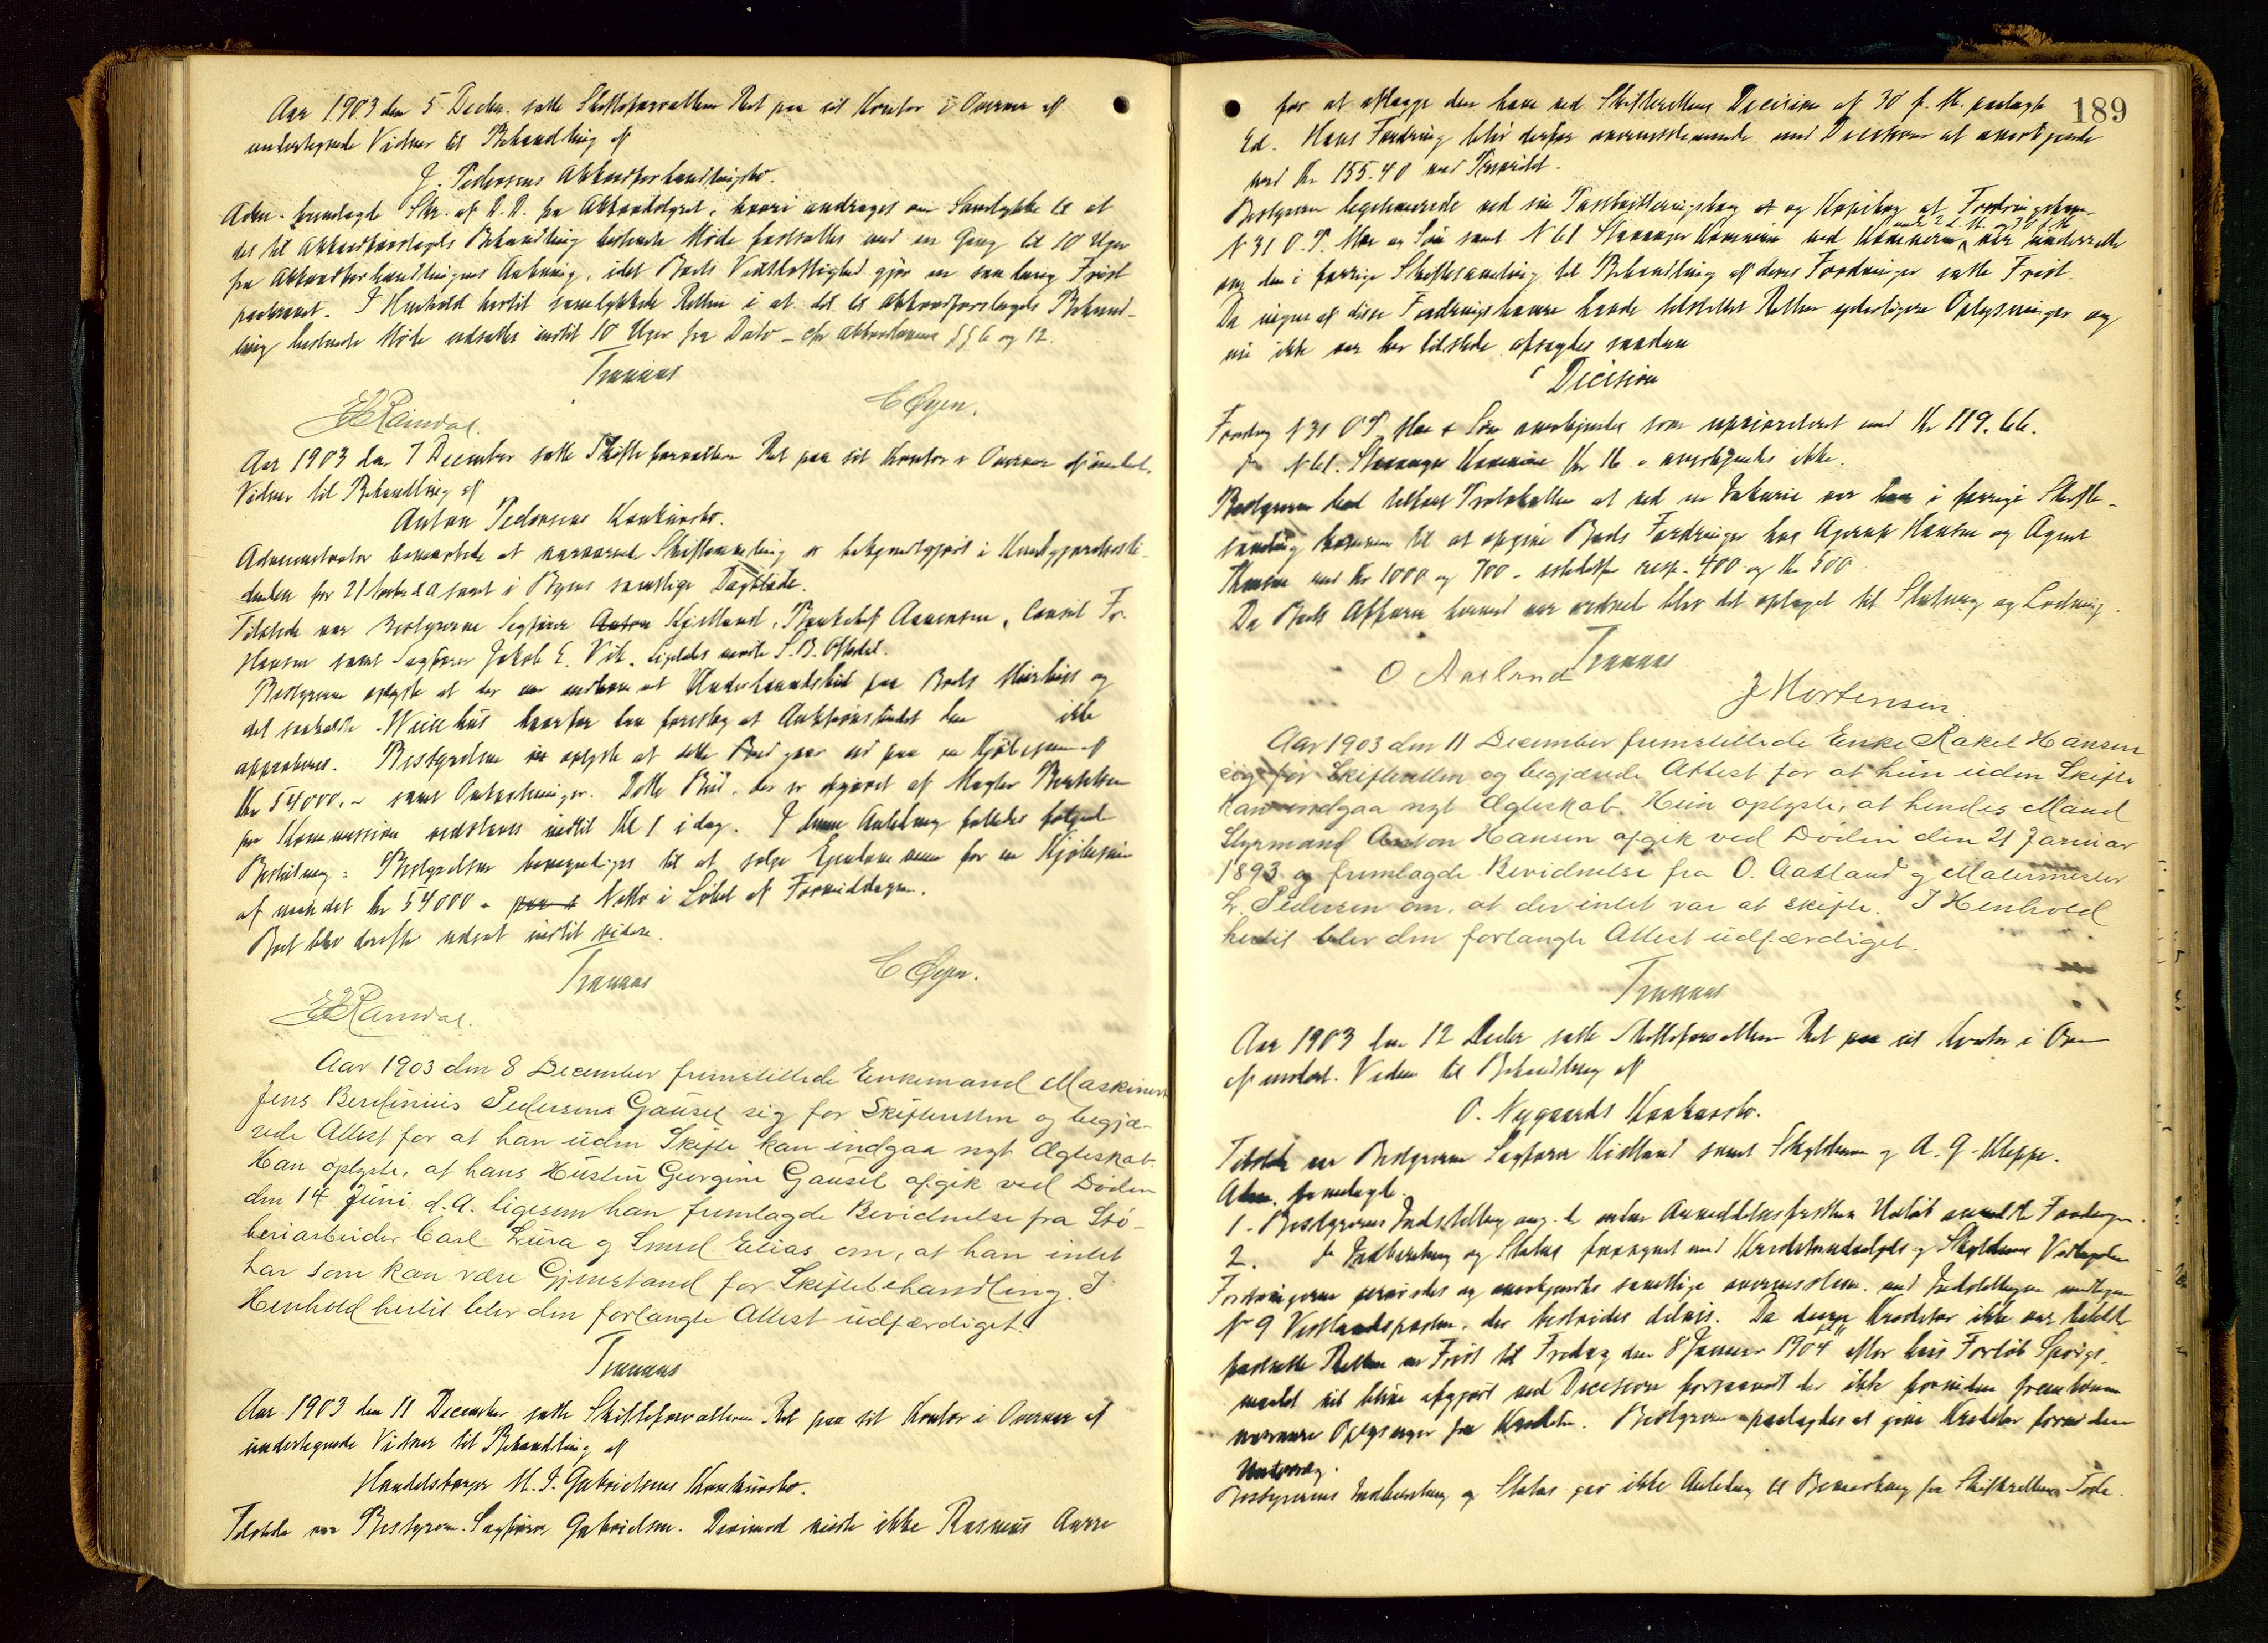 Aar 1903 den 5 Decbr. satte Skifteforvalteren Ret paa sit Kontor i Overvær af
undertegnede Vidner til Behandling af
J. Pedersens Akkordforhandlingsbo.
Adm. fremlagde Skr. af D. D. fra Akkordstyret, hvori andrages om Samtykke til at
det til Akkordforslagets Behandling bestemte Møde fastsættes med en Gang til 10 Uger
fra Akkordforhandlingens Aabning, idet Boets Vidtløftighed gjør en saa lang Frist
paakrævet. I Henhold hertil samtykkede Retten i at det til Akkordforslagets Behand-
ling bestemte Møde udsættes indtil 10 Uger fra Dato - cfr Akkordlovens §§ 6 og 12.
Tranaas
E Ramdal. C Øyen.
Aar 1903 den 7 December satte Skifteforvalteren Ret paa sit Kontor i Overvær af undert.
Vidner til Behandling af
Anton Pedersens Konkursbo.
Administrator bemærkede at nærværende Skiftesamling er bekjendtgjort i Kundgjørelsesti-
denden for 21 Novbr d A samt i Byens samtlige Dagblade.
Tilstede var Bestyrerne Sagfører Anton Kjelland, Bankchef Aanensen, Consul Fr.
Hansen samt Sagfører Jakob E. Vik. Ligeledes mødte S. B. Oftedal.
Bestyreren oplyste at der var indkommet Underhaandsbud paa Boets Murhus og
det saakaldte Weichus hvorfor han foreslog at Auktionsbudet ikke
approberes. Bestyrelsen oplyste at dette Bud gaar ud paa en Kjøbesum af
Kr 54000,- samt Omkostninger. Dette Bud, der er afgivet af Megler Bertelsen
paa Kommission vedstaaes indtil Kl 1 i dag. I denne Anledning fattedes følgende
Beslutning: Bestyrelsen bemyndiges til at sælge Eiendommene for en Kjøbesum
af mindst Kr 54000 - Netto i Løbet af Formiddagen.
Boet blev derefter udsat indtil videre.
Tranaas C Øyen.
E Ramdal.
Aar 1903 den 8 December fremstillede Enkemand Maskinist
Jens Berdinius Pedersens Gausel sig for Skifteretten og begjæ-
rede Attest for at han uden Skifte kan indgaa nyt Ægteskab.
Han oplyste, at hans Hustru Georgine Gausel afgik ved Døden
den 14 Juni d. A. ligesom han fremlagde Bevidnelse fra Stø-
beriarbeider Carl Lura og Smed Elias om, at han intet
har som kan være Gjenstand for Skiftebehandling. I
Henhold hertil blev den forlangte Attest udfærdiget.
Tranaas
Aar 1903 den 11 December satte Skifteforvalteren Ret paa sit Kontor i Overvær af
undertegnede Vidner til Behandling af
Handelsborger M. I. Gabrielsens Konkursbo.
Tilstede var Bestyreren Sagfører Gabrielsen. Derimod mødte ikke Rasmus Aarre
189
for at aflægge den ham ved Skifterettens Decision af 30 f. M. paalagte
Ed. Hans Fordring blev derfor overensstemmende med Decisionen at anerkjende
med Kr 155.40 med Prioritet.
Bestyreren legitimerede ved sin Postkvitteringsbog og Kopibog at Fordringshaver
N 31 O. P. Moe og Søn samt N 61 Stavanger Kommune ved Kommunen under 2 d. M. og 30 f. M. var underrettet
om den i forrige Skiftesamling til Behandling af deres Fordringer satte Frist.
Da ingen af disse Fordringshavere havde tilstillet Retten yderligere Oplysninger og
nu ikke var her tilstede afsagdes saadan
Decision
Fordring N 31 O P Moe & Søn anerkjendes som uprioriteret med Kr 119.66.
do N 61. Stavanger Kommune Kr 16 - anerkjendes ikke.
Bestyreren bad tilført Protokollen at ved en Inkurie var han i forrige Skifte-
samling kommen til at opgive Boets Fordringer hos Agerup Hansen og Agent
Thomsen med Kr 1000 og 700 - istedetfor resp. 400 og Kr 500
Da Boets Affærer hermed var ordnet blev det optaget til Slutning og Lodning.
Tranaas
O Aasland J Mortensen
Aar 1903 den 11 December fremstillede Enke Rakel Hansen
sig for Skifteretten og begjærede Attest for at hun uden Skifte
kan indgaa nyt Ægteskab. Hun oplyste, at hendes Mand
Styrmand Anton Hansen afgik ved Døden den 21 Januar
1893 og fremlagde Bevidnelse fra O. Aasland og Malermester
L. Pedersen om, at der intet var at skifte. I Henhold
hertil blev den forlangte Attest udfærdiget.
Tranaas
Aar 1903 den 12 Decbr satte Skifteforvalteren Ret paa sit Kontor i Over
af undert. Vidner til Behandling af
O. Nygaards Konkursbo.
Tilstede var Bestyreren Sagfører Kielland samt Skyldneren og A. G. Kleppe.
Adm. fremlagde.
1. Bestyrerens Indstilling ang. de inden Anmeldelsesfristens Udløb anmeldte Fordringer.
2. do Indberetning og Status forsynet med Kreditorudvalgets og Skyldneres Vedtagelse
Fordringerne prøvedes og anerkjendtes samtlige overensstem. med Indstillingen undtagen
No 9 Vestlandsposten, der bestrides delvis. Da denne Kreditor ikke var tilstede
fastsatte Retten en Frist til Fredag den 8 Januar 1904 efter hvis Forløb Spørgs-
maalet vil blive afgjort ved Decision forsaavidt der ikke forinden fremkommer
nærmere Oplysninger fra Kreditor. Bestyreren paalagdes at give Kreditor fornøden
Underretning.
Bestyrerens Indberetning og Status gav ikke Anledning til Bemærkning fra Skifterettens Side.